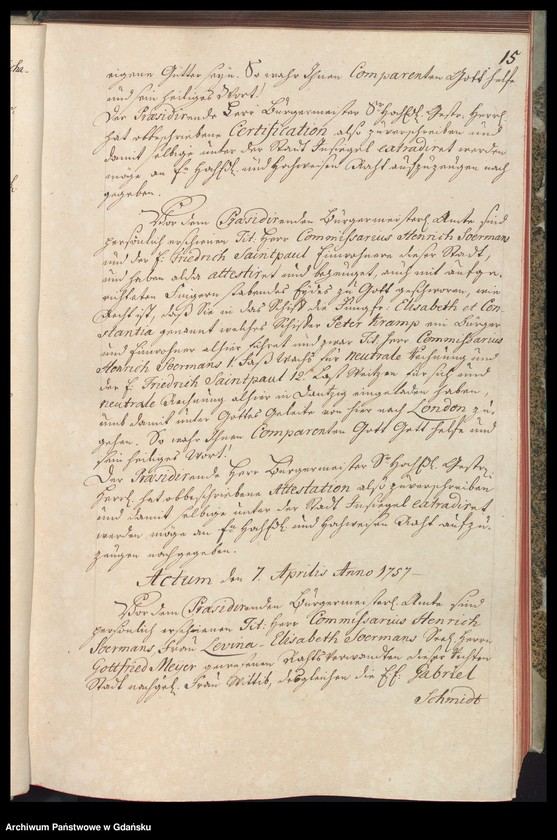 15
eigene Gütter seyn. So wahr Ihnen Comparenten Gott helfe
und sein heiliges Wort!
Der Præsidirende Herr Bürgermeister Sr Hochedl. Gestr. Herrl.
hat obbeschriebene Certification also zuverschreiben und
damit selbige unter der Stadt Insiegel extradiret werden
möge an En Hochedl. und Hochweisen Raht auszuzeugen nach
gegeben.
Vor dem Præsidirenden Bürgermeisterl. Amte sind
persönlich erschienen Tit. Herr Commissarius Henrich Soermans
und der E. Friedrich Saintpaul Einwohnere dieser Stadt,
und haben alda attestiret und bezeuget, auch mit aufge-
richteten Fingern stabendes Eydes zu Gott geschworen, wie
Recht ist, daß Sie in das Schiff die Jungfr: Elisabeth et Con
stantia genannt welches Schiffer Peter Kramp ein Bürger
und Einwohner alhier führet und zwar Tit. Herr Commissarius
Henrich Soermans 1. Faß Wachs für neutrale Rechnung und
der E. Friedrich Saintpaul 12. Last Weitzen für sich und
neutrale Rechnung alhier in Dantzig eingeladen haben,
umb damit unter Gottes Geleite von hier nach London zu
gehen. So wahr Ihnen Comparenten Gott Gott helfe und
sein heiliges Wort!
Der Præsidirende Herr Bürgermeister Sr Hochedl. Gestr.
Herrl. hat obbeschriebene Attestation also zuverschreiben
und damit selbige unter der Stadt Insiegel extradiret
werden möge an En Hochedl. und Hochweisen Raht auszu-
zeugen nachgegeben.
Actum den 7. Aprilis Anno 1757
Vor dem Præsidirenden Bürgermeisterl. Amte sind
persönlich erschienen Tit. Herr Commissarius Henrich
Soermans, Frau Levina Elisabeth Soermans Seel. Herrn
Gottfried Meyer gewesenen Rahtsverwandten dieser Rechten
Stadt nachgel. Frau Wittib, desgleichen die EE. Gabriel
Schmidt
Archiwum Państwowe w Gdańsku